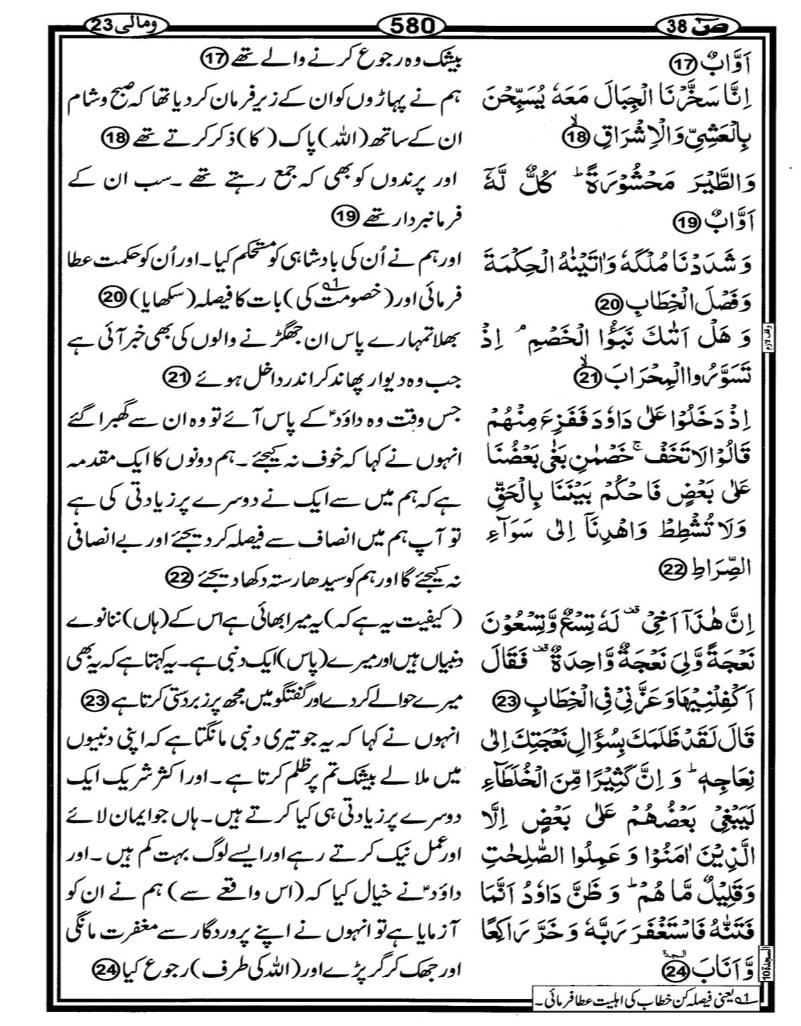 صٓ 38
580
ومالی 23
اَوَّابٌ ⑰
اِنَّا سَخَّرْنَا الْجِبَالَ مَعَهٗ يُسَبِّحْنَ
بِالْعَشِيِّ وَالْاِشْرَاقِ ۙ⑱
وَالطَّيْرَ مَحْشُوْرَةً ؕ كُلٌّ لَّهٗۤ
اَوَّابٌ ⑲
وَشَدَدْنَا مُلْكَهٗ وَاٰتَيْنٰهُ الْحِكْمَةَ
وَفَصْلَ الْخِطَابِ ⑳
وَهَلْ اَتٰىكَ نَبَؤُا الْخَصْمِ ۘ اِذْ
تَسَوَّرُوا الْمِحْرَابَ ۙ㉑
اِذْ دَخَلُوْا عَلٰى دَاوٗدَ فَفَزِعَ مِنْهُمْ
قَالُوْا لَا تَخَفْ ۚ خَصْمٰنِ بَغٰى بَعْضُنَا
عَلٰى بَعْضٍ فَاحْكُمْ بَيْنَنَا بِالْحَقِّ
وَلَا تُشْطِطْ وَاهْدِنَاۤ اِلٰى سَوَآءِ
الصِّرَاطِ ㉒
اِنَّ هٰذَاۤ اَخِيْ ۟ لَهٗ تِسْعٌ وَّتِسْعُوْنَ
نَعْجَةً وَّلِيَ نَعْجَةٌ وَّاحِدَةٌ ۟ فَقَالَ
اَكْفِلْنِيْهَا وَعَزَّنِيْ فِي الْخِطَابِ ㉓
قَالَ لَقَدْ ظَلَمَكَ بِسُؤَالِ نَعْجَتِكَ اِلٰى
نِعَاجِهٖ ؕ وَاِنَّ كَثِيْرًا مِّنَ الْخُلَطَآءِ
لَيَبْغِيْ بَعْضُهُمْ عَلٰى بَعْضٍ اِلَّا
الَّذِيْنَ اٰمَنُوْا وَعَمِلُوا الصّٰلِحٰتِ
وَقَلِيْلٌ مَّا هُمْ ؕ وَظَنَّ دَاوٗدُ اَنَّمَا
فَتَنّٰهُ فَاسْتَغْفَرَ رَبَّهٗ وَخَرَّ رَاكِعًا
وَّاَنَابَ ㉔ السجدة
بیشک وہ رجوع کرنے والے تھے ⑰
ہم نے پہاڑوں کو ان کے زیرِ فرمان کر دیا تھا کہ صبح و شام
ان کے ساتھ (اللہ) پاک (کا) ذکر کرتے تھے ⑱
اور پرندوں کو بھی کہ جمع رہتے تھے ۔ سب ان کے
فرمانبردار تھے ⑲
اور ہم نے اُن کی بادشاہی کو مستحکم کیا۔ اور اُن کو حکمت عطا
فرمائی اور (خصومت کی) 1ؔ بات کا فیصلہ (سکھایا) ⑳
بھلا تمہارے پاس ان جھگڑنے والوں کی بھی خبر آئی ہے
جب وہ دیوار پھاند کر اندر داخل ہوئے ㉑
جس وقت وہ داوٗدؑ کے پاس آئے تو وہ ان سے گھبرا گئے
انہوں نے کہا کہ خوف نہ کیجئے۔ ہم دونوں کا ایک مقدمہ
ہے کہ ہم میں سے ایک نے دوسرے پر زیادتی کی ہے
تو آپ ہم میں انصاف سے فیصلہ کر دیجئے اور بے انصافی
نہ کیجئے گا اور ہم کو سیدھا رستہ دکھا دیجئے ㉒
(کیفیت یہ ہے کہ) یہ میرا بھائی ہے اس کے (ہاں) ننانوے
دنبیاں ہیں اور میرے (پاس) ایک دنبی ہے۔ یہ کہتا ہے کہ یہ بھی
میرے حوالے کر دے اور گفتگو میں مجھ پر زبردستی کرتا ہے ㉓
انہوں نے کہا کہ یہ جو تیری دنبی مانگتا ہے کہ اپنی دنبیوں
میں ملا لے بیشک تم پر ظلم کرتا ہے۔ اور اکثر شریک ایک
دوسرے پر زیادتی ہی کیا کرتے ہیں۔ ہاں جو ایمان لائے
اور عمل نیک کرتے رہے اور ایسے لوگ بہت کم ہیں ۔ اور
داوٗدؑ نے خیال کیا کہ (اس واقعے سے) ہم نے ان کو
آزمایا ہے تو انہوں نے اپنے پروردگار سے مغفرت مانگی
اور جھک کر گر پڑے اور (اللہ کی طرف) رجوع کیا ㉔
وقف لازم
السجدة 10
1ؔ یعنی فیصلہ کن خطاب کی اہلیت عطا فرمائی۔